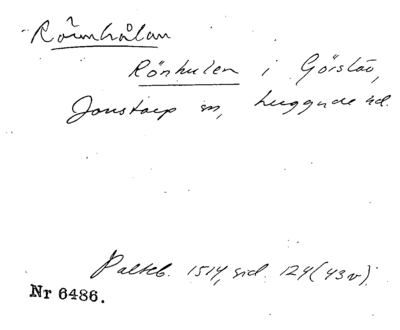 Rönnhålan
Rönhulen i Görslöv,
Jonstorp sn, Luggude hd.
Palteb. 1514, sid. 124 (43v).
Nr 6486.